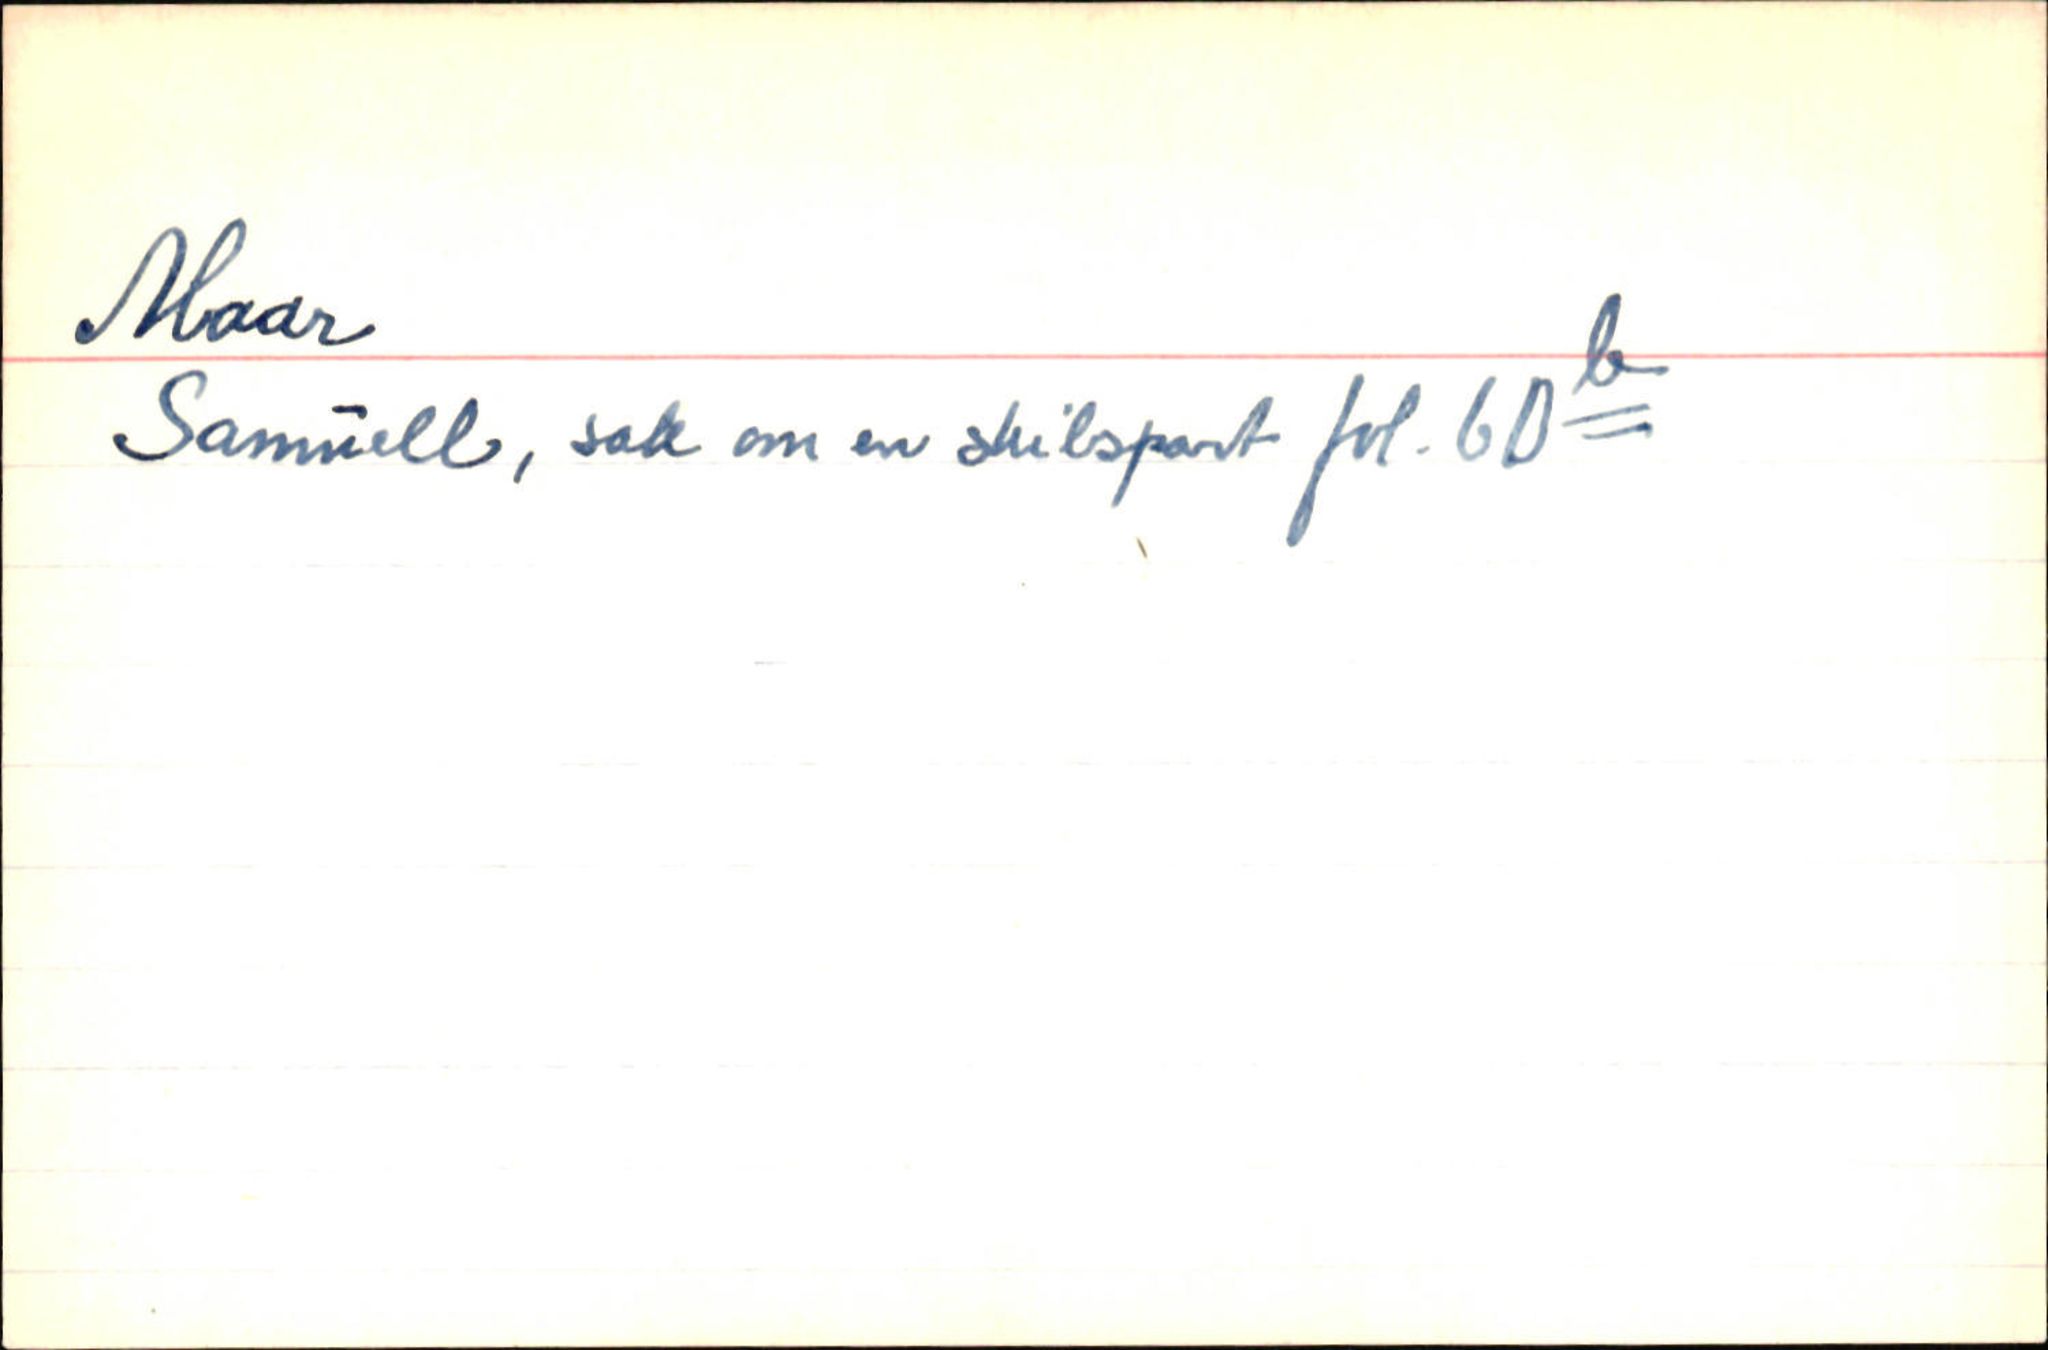 Maar
Samuell, sak om en skibspart fol. 60 b